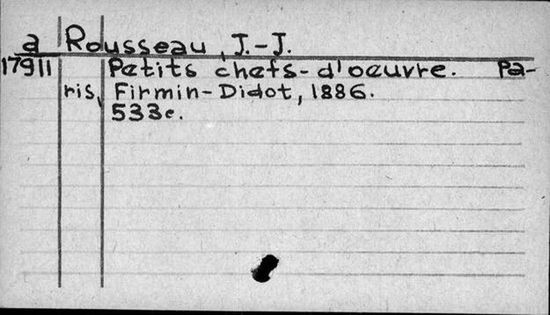 a Rousseau, J.-J.
17911 Petits chefs-d'oeuvre. Pa-
ris, Firmin-Didot, 1886.
533c.